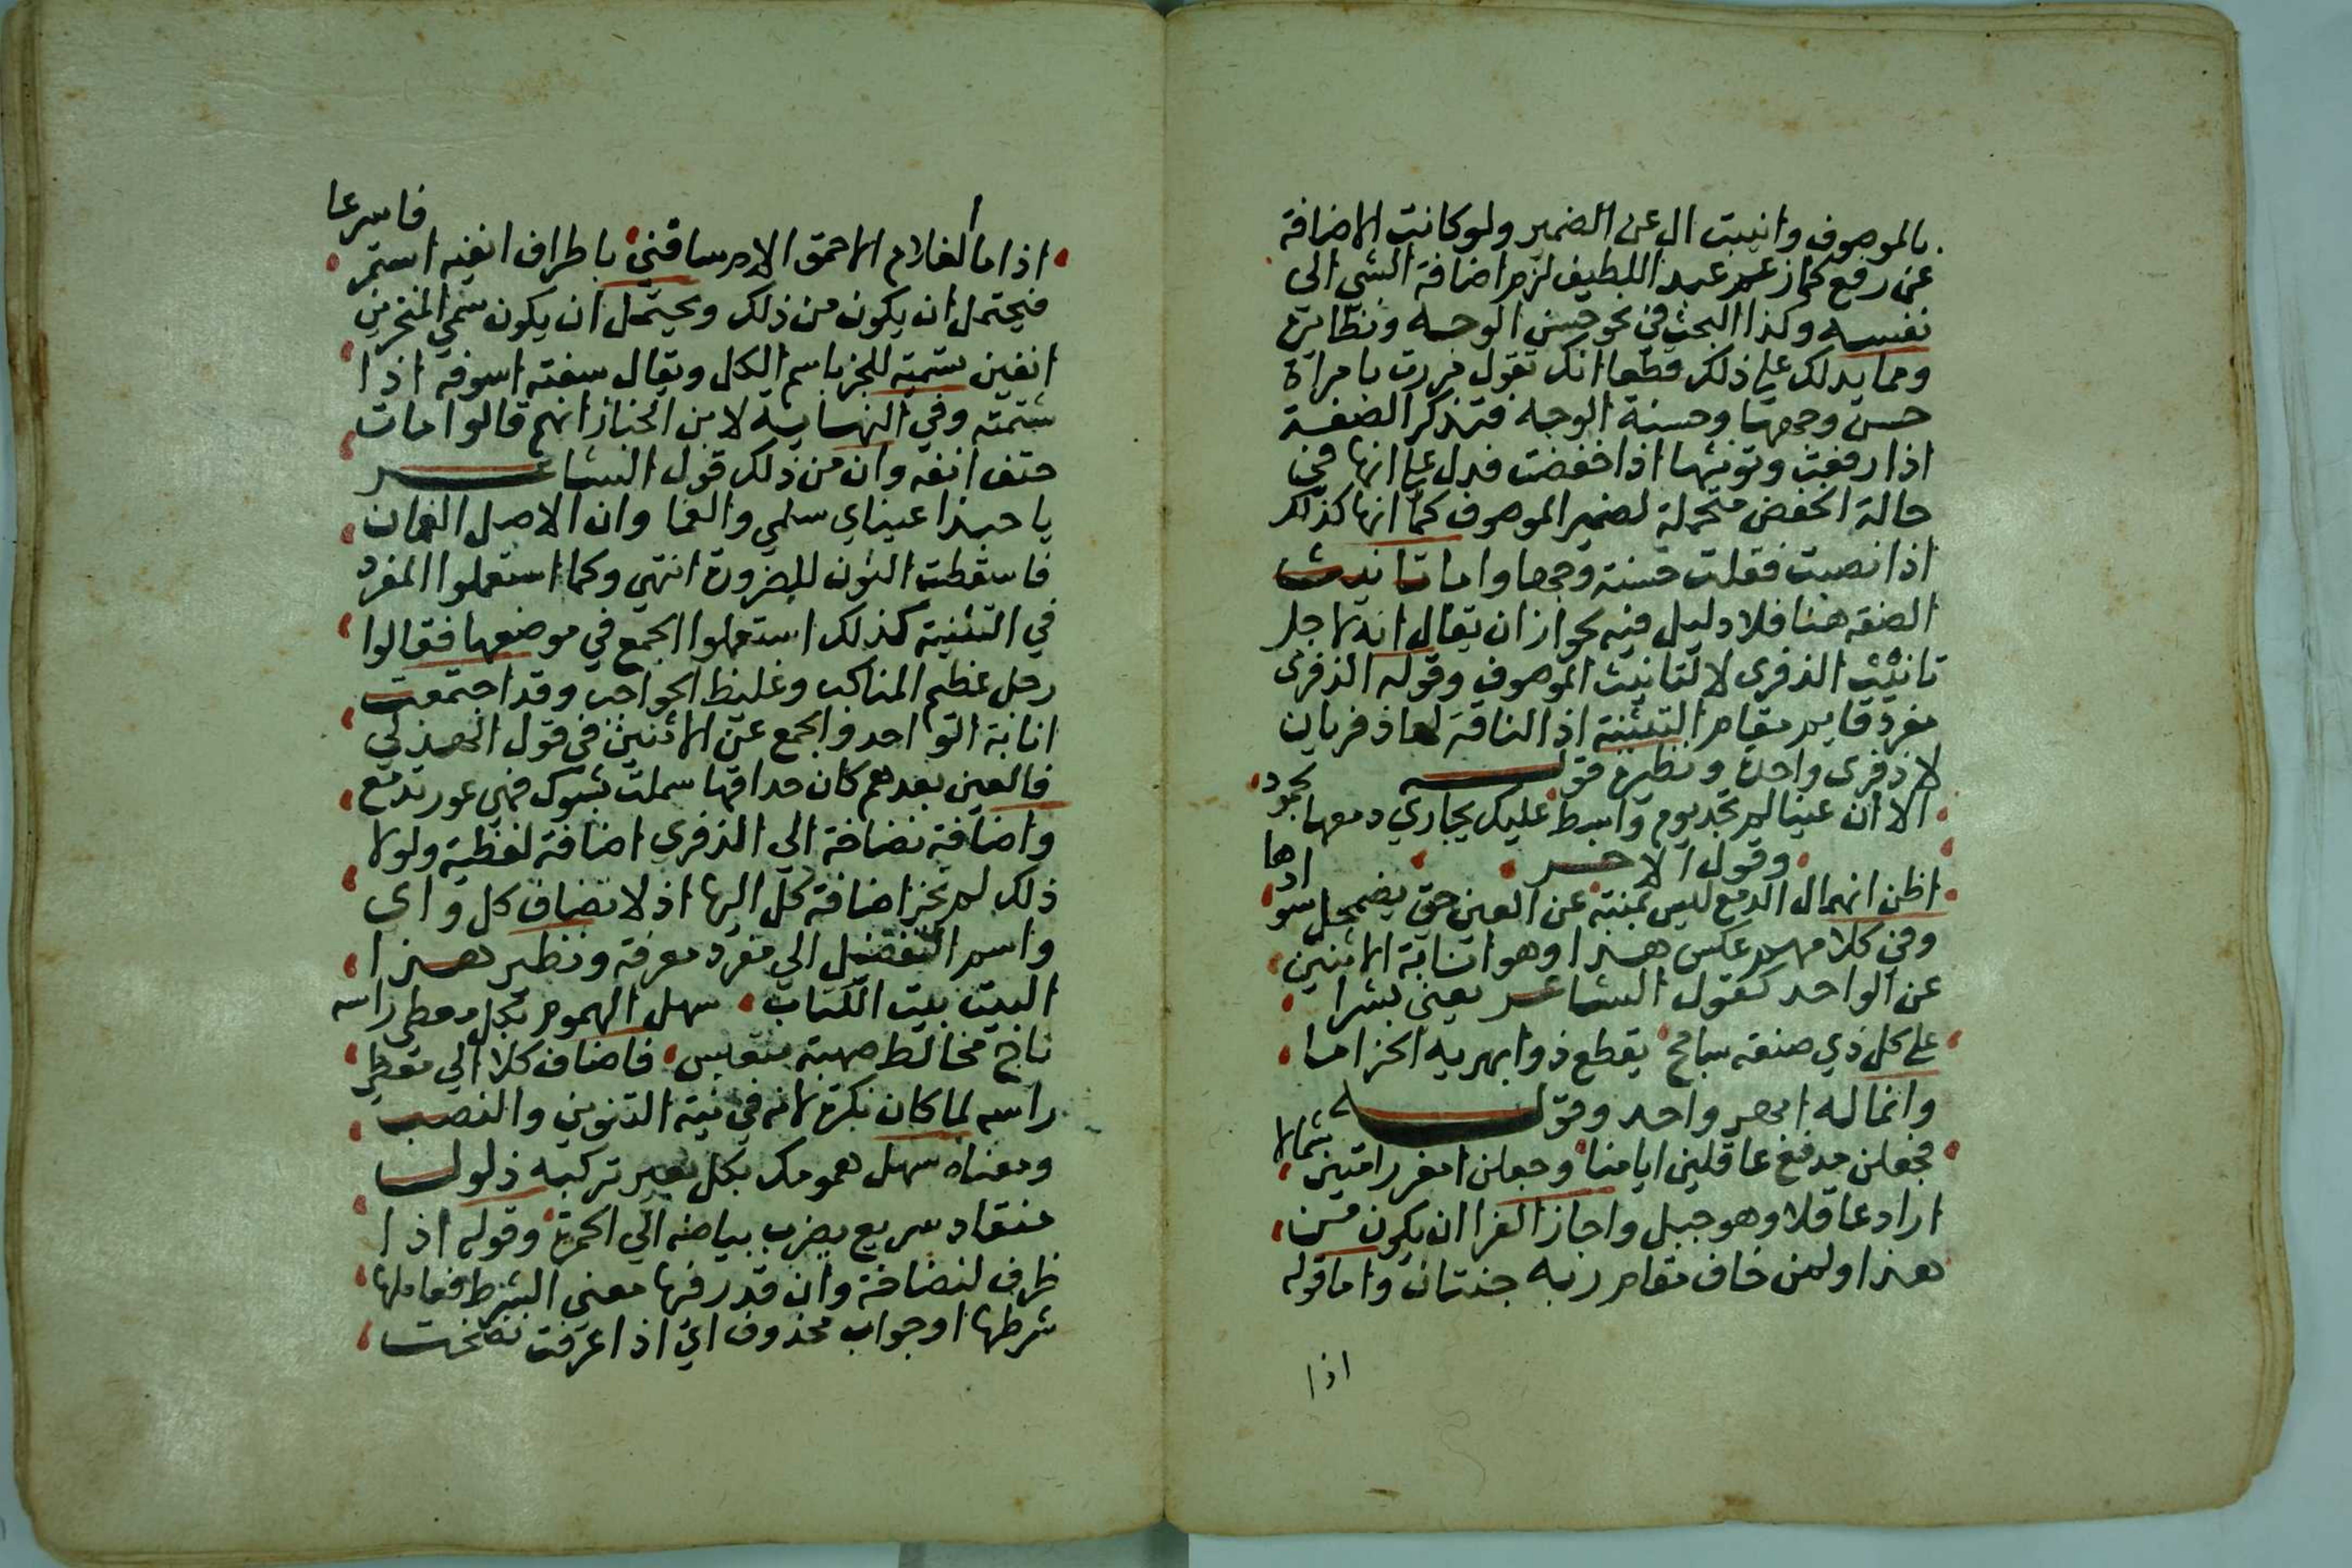 بالموصوف وانيبت ال عن الضمير ولو كانت الاضافة
عن رفع كما زعم عبد اللطيف لزم اضافة الشي الى
نفسه وكذا البحث في نحو حسن الوجه ونظائره
ومما يدلك علي ذلك قطعا انك تقول مررت بامراة
حسن وجهها وحسنة الوجه فتذكر الصفة
اذا رفعت وتونثها اذا خفضت فدل علي انها في
حالة الخفض متحملة لضمير الموصوف كما انها كذلك
اذا نصبت فقلت حسنة وجها واما تانيث
الصفة هنا فلا دليل فيه لجواز ان يقال انه لاجل
تانيث الذفرى لا لتانيث الموصوف وقوله الذفرى
مفرد قايم مقام التثنية اذ الناقة لها ذفريان
لا ذفرى واحدة ونظيره قوله
الا ان عينا لم تجد يوم واسط عليك بجاري دمعها لجمود
وقول الاخر
اظن انهمال الدمع ليس بمنته عن العين حتى يضمحل سوادها
وفي كلامهم عكس هذا وهو انابة الاثنين
عن الواحد كقول الشاعر يعني بشرا
علي كل ذي صنفة سابح يقطع ذو ابهريه الحزاما
وانما له ابهر واحد وقوله
فجعلن مدفع عاقلين ايامنا وجعلن امعز رامتين شمالا
اراد عاقلا وهو جبل واجاز الفرا ان يكون من
هذا ولمن خاف مقام ربه جنتان واما قوله
اذا
اذا ما الغلام الاحمق الام ساقني باطراف انفيه استمر فاسرعا
فيحتمل ان يكون من ذلك ويحتمل ان يكون سمي المنخرين
انفين تسمية للجز باسم الكل ويقال سفته اسوفه اذا
شممته وفي النهاية لابن الخباز انهم قالوا مات
حتف انفه وان من ذلك قول الشاعر
يا حبذا عيناي سلمي والفما وان الاصل الفمان
فاسقطت النون للضرورة انتهي وكما استعملوا المفرد
في التثنية كذلك استعملوا الجمع في موضعها فقالوا
رجل عظيم المناكب وغليظ الحواجب وقد اجتمعت
انابة الواحد والجمع عن الاثنين في قول الهذلي
فالعين بعدهم كان حداقها سملت بشوك فهي عور تدمع
واضافة نضاخة الي الذفري اضافة لفظية ولولا
ذلك لم تجز اضافة كل اليها اذ لا تضاف كل و اي
واسم التفضيل الي مفرد معرفة ونظير هذا
البيت بيت الكتاب سهل الهموم بكل معطي راسه
ناج مخالط صهبة متعيس فاضاف كلا الي معطي
راسه لما كان نكرة لانه في نية التنوين والنصب
ومعناه سهل همومك بكل بعير تركبه ذلول
منقاد سريع يضرب بياضه الي الحمرة وقوله اذا
ظرف لنضاخة وان قدر فيها معني الشرط فعاملها
شرطها او جواب محذوف اي اذا عرقت نضخت